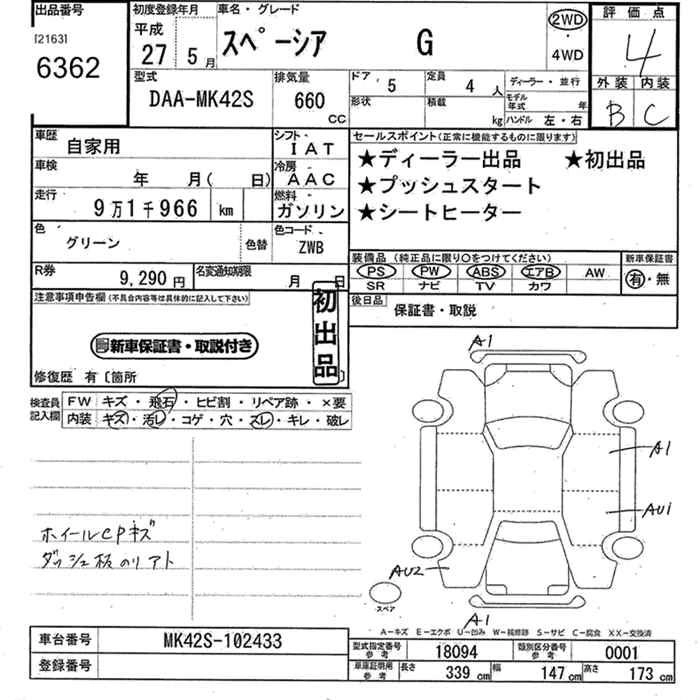 出品番号
[2163]
6362
初度登録年月
平成
27 5月
車名・グレード
スペーシア G
2WD
・
4WD
評価点
4
外装 内装
B C
型式
DAA-MK42S
排気量
660
CC
ドア 5
定員 4 人
ディーラー・並行
形状
積載 kg
モデル年式 年
ハンドル 左・右
車歴 自家用
シフト IAT
車検 年 月( 日)
冷房 AAC
走行 9万1千966 km
燃料 ガソリン
色 グリーン
色替
色コード ZWB
R券 9,290 円
名変通知期限 月 日
セールスポイント(正常に機能するものに限ります)
★ディーラー出品 ★初出品
★プッシュスタート
★シートヒーター
装備品(純正品に限り○をつけてください)
新車保証書
PS PW ABS エアB AW
有・無
SR ナビ TV カワ
後日品 保証書・取説
注意事項申告欄(不具合内容等は具体的に記入して下さい)
初出品
新車保証書・取説付き
修復歴 有〔箇所
検査員
記入欄
FW キズ・飛石・ヒビ割・リペア跡・×要
内装 キズ・汚レ・コゲ・穴・スレ・キレ・破レ
ホイールCPキズ
ダッシュ板のリアト
A1
A1
AU1
AU2
A1
スペア
A-キズ E-エクボ U-凹み W-補修跡 S-サビ C-腐食 XX-交換済
車台番号 MK42S-102433
登録番号
型式指定番号
参考
18094
類別区分番号
参考
0001
車庫証明用
参考
長さ 339 cm
幅 147 cm
高さ 173 cm